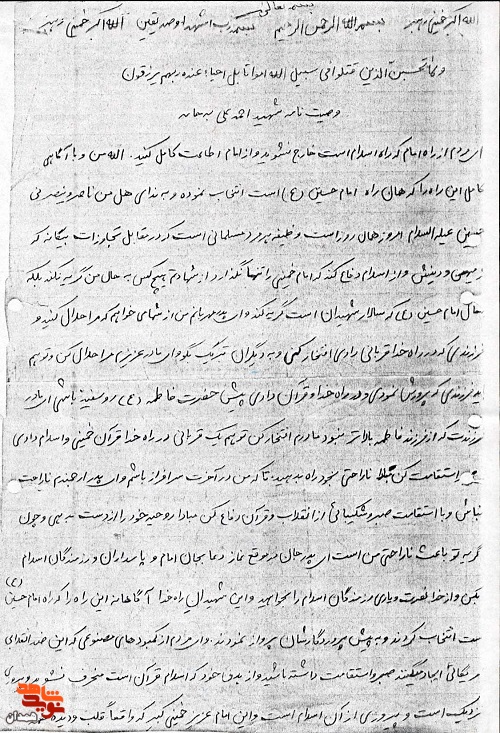 بسمه تعالی
الله اکبر خمینی رهبر بسم الله الرحمن الرحیم بسم رب الشهداء و صدیقین الله اکبر خمینی رهبر
ولا تحسبن الذین قتلوا فی سبیل الله امواتا بل احیاء عند ربهم یرزقون
وصیت نامه شهید احمد علی
ای مردم از راه امام که راه اسلام است خارج نشوید و از امام اطاعت کامل کنید. الله من و با آگاهی
کامل این راه را که همان راه امام حسین (ع) است انتخاب نموده و به ندای هل من ناصر ینصرنی
حسین علیه السلام امروز همان روز است وظیفه هر فرد مسلمانی است که در مقابل تجاوزات بیگانه که
میهن و دینش و از اسلام دفاع کند که امام خمینی را تنها نگذارد از شهادتم هیچ کس به حال من گریه نکند بلکه
حال امام حسین (ع) که سالار شهیدان است گریه کند و ای پدر مهربانم من از شما می خواهم که مرا حلال کنید و
فرزندی که در راه خدا قربانی دادی افتخار کنی و به دیگران تبریک بگو ای مادر عزیزم مرا حلال کن و تو هم
فرزندی که پرورش نمودی و در راه خدا و قرآن دادی پیش حضرت فاطمه (ع) رو سفید باشی ای مادر
فرزندت که از فرزند فاطمه بالاتر نبود مادرم افتخار کن تو هم یک قربانی در راه خدا قرآن خمینی و اسلام دادی
استقامت کن مبادا ناراحتی بخود راه بدهید تا که من در آخرت سرافراز باشم و ای پدر ارجمندم ناراحت
نباش و با استقامت صبر و شکیبائی از انقلاب و قرآن دفاع کن مبادا روحیه خود را از دست بدهی و چون
گریه تو باعث ناراحتی من است ای پدر جان موقع نماز دعا بجان امام و پاسداران و رزمندگان اسلام
بکن و از خدا نصرت و یاری رزمندگان اسلام را بخواهید و این شهیدان راه خدا آگاهانه این راه را که راه امام حسین (ع)
است انتخاب کردند و به پیش پروردگارشان پرواز نمودند. و ای مردم از کمبودهای مصنوعی که این ضد انقلابی
ایجاد میکنند صبر و استقامت داشته باشید و از هدف خود که اسلام قرآن است منحرف نشوید و پیروزی
نزدیک است و پیروزی از آن اسلام است و این امام عزیز خمینی کبیر که واقعاً قلب و دیده
نوید شاهد